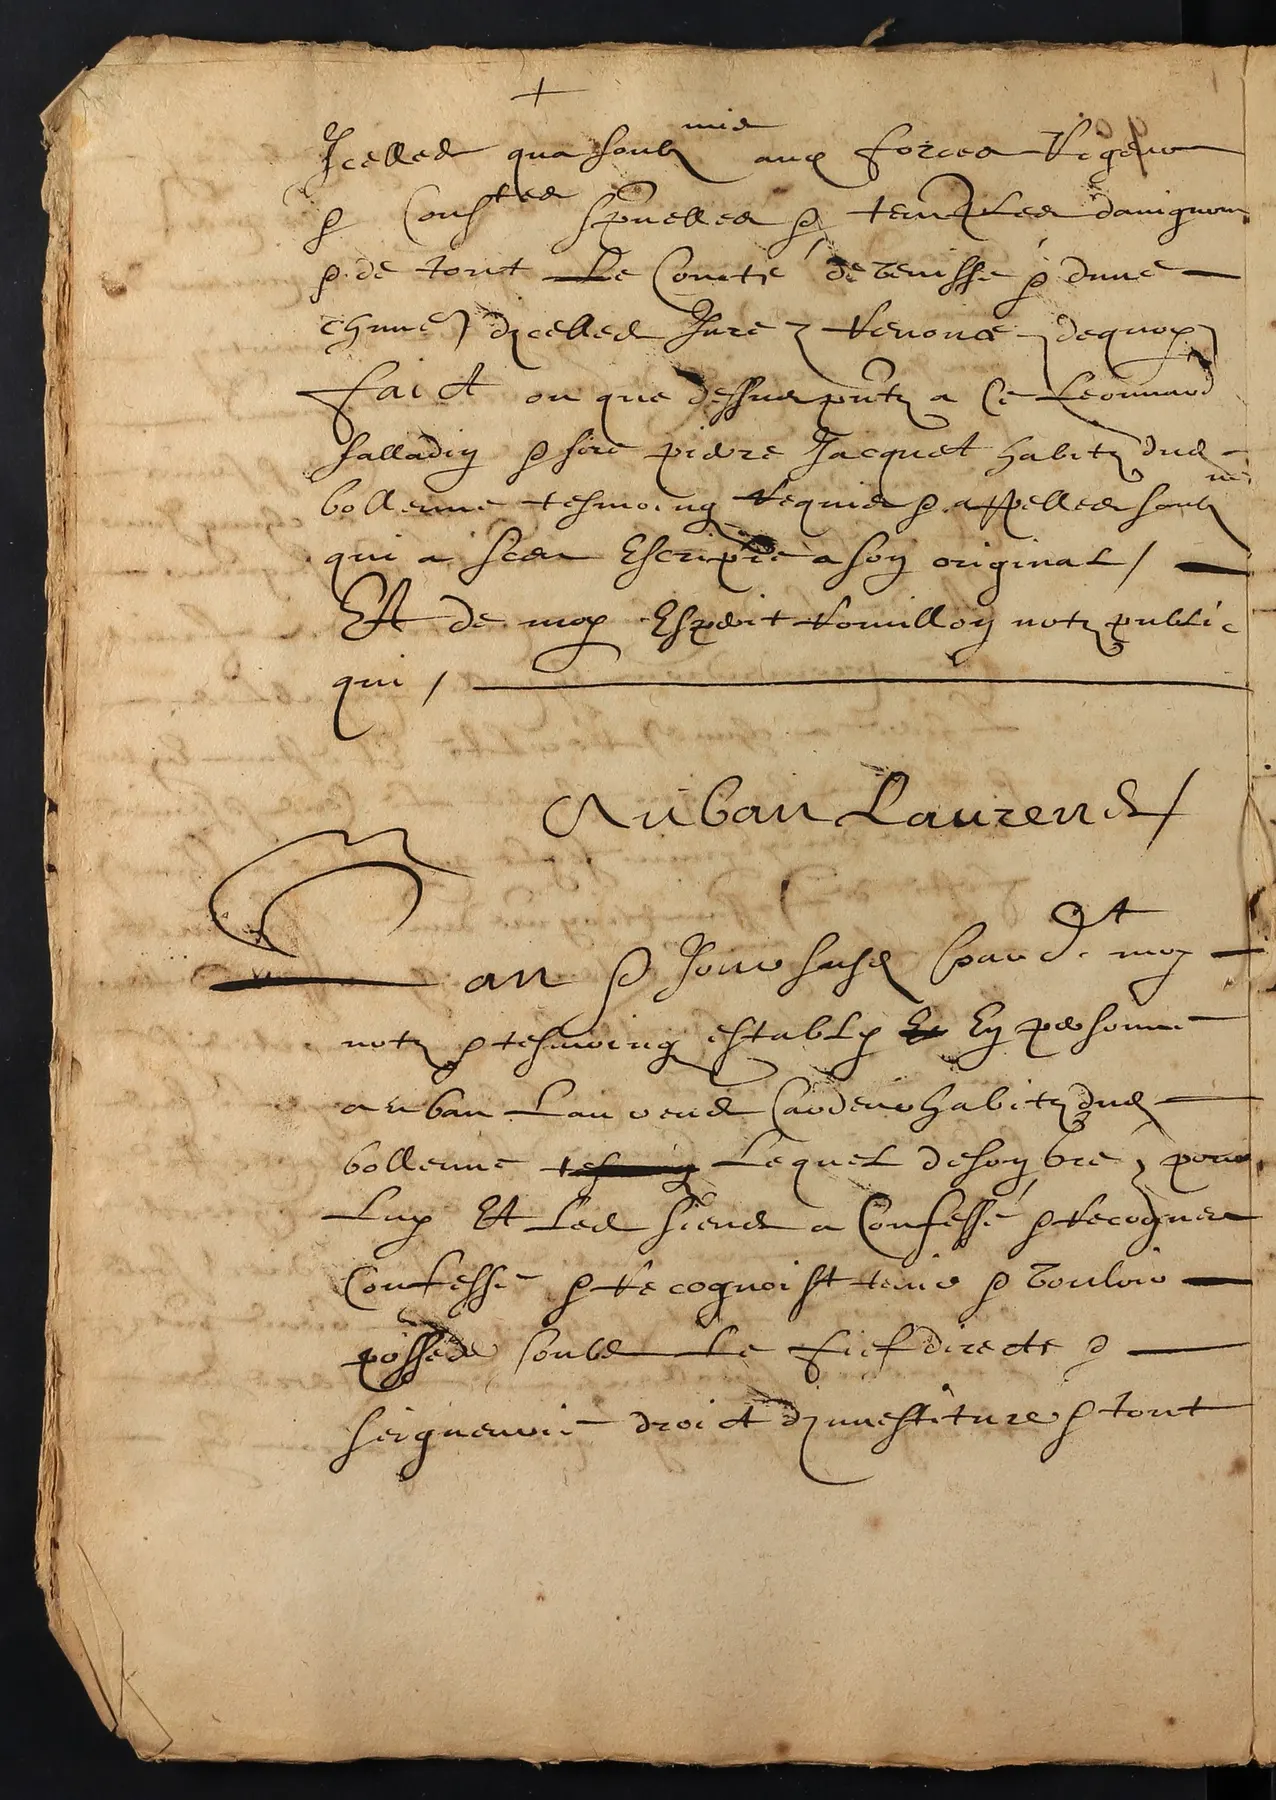 Icelles qua soubz mis aux forces Rigeur
& Coustes spuelles & temp^les davignon
& de tout Le Comte de Venisse & dune
chune dicelles Jure & Renonce dequoy
faict ou que dessus pntz a Ce Leonnard
salladin & sire pierre Jacquet habitz dud
bollenne tesmoing Requis & appelles soubz nes
qui a sceu Escripre a son original /
Et de moy Esperit Romillon notz public
qui /
Auban Laurens /
L an & Jour susd pard.t moy
notz & tesmoing establi En personne
auban Laurens Carderr habitz dud
bollenne Lequel de son bre & pour
Luy Et Les siens a Confessé & Recogneu
Confesse & Recognoist tenir & Vouloir
posseder soubs Le fief directe &
seigneurie droict dinvestiture & tout